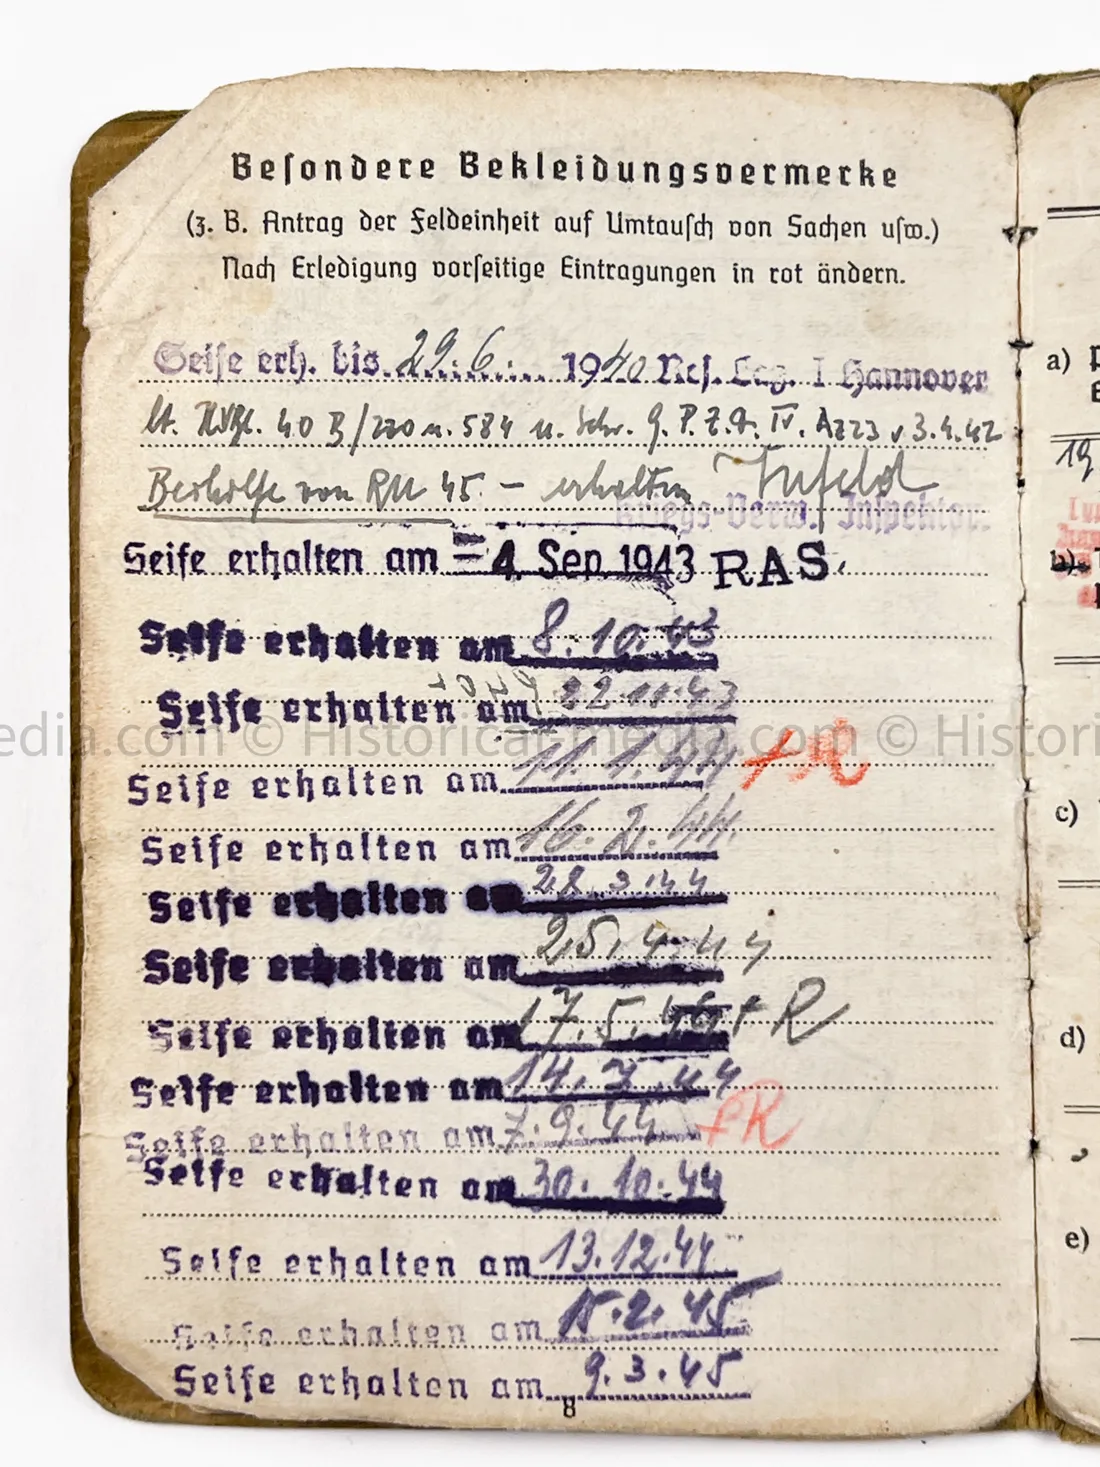 Besondere Bekleidungsvermerke
(z. B. Antrag der Feldeinheit auf Umtausch von Sachen usw.)
Nach Erledigung vorseitige Eintragungen in rot ändern.
Seife erh. bis 29. 6. 1940 Res. Laz. I Hannover
lt. 40 B/220 u. 584 u. Schr. G. P. Z. A. IV. Az 23 v 3.4.42
Beihilfe von RM 45.- erhalten
Kriegs-Verw. Inspektor.
Seife erhalten am - 4. Sep. 1943 RAS.
Seife erhalten am 8. 10. 43
Seife erhalten am 22 11. 43
Seife erhalten am 11. 1. 44 + R
Seife erhalten am 16. 2. 44.
Seife erhalten am 28. 3. 44
Seife erhalten am 25. 4. 44
Seife erhalten am 17. 5. 44 + R
Seife erhalten am 14. 7. 44
Seife erhalten am 7. 9. 44 + R
Seife erhalten am 30. 10. 44
Seife erhalten am 13. 12. 44
Seife erhalten am 15. 2. 45
Seife erhalten am 9. 3. 45
8
a)
19
b)
c)
d)
e)
edia.com © Historical-media.com © Histori